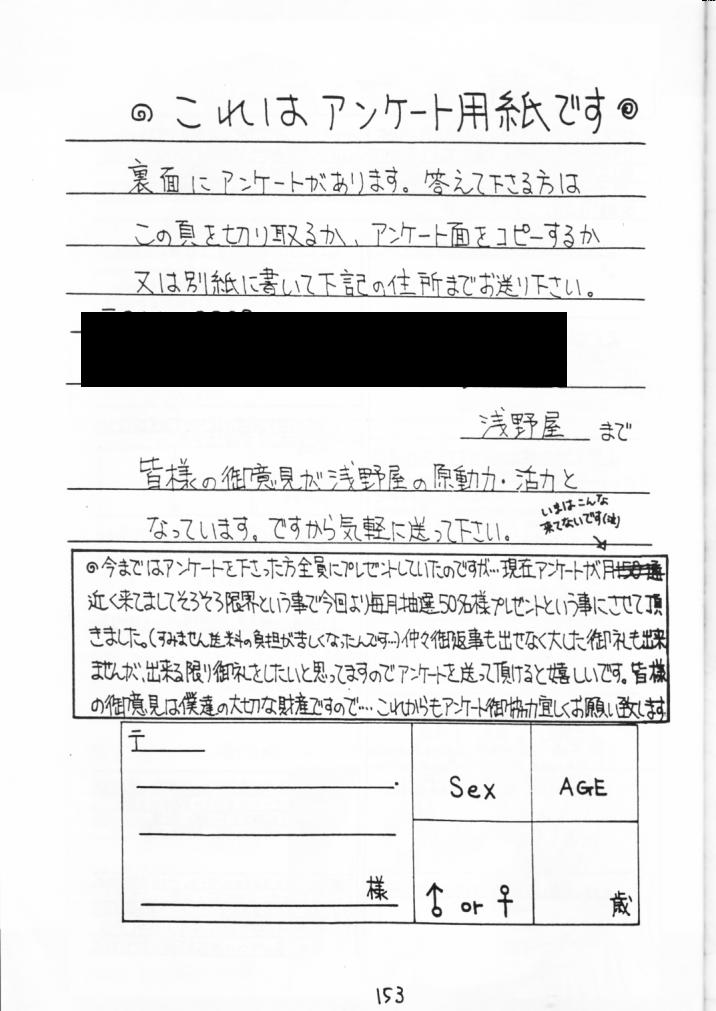 これはアンケート用紙です
裏面にアンケートがあります。答えて下さる方は
この頁を切り取るか、アンケート面をコピーするか
又は別紙に書いて下記の住所までお送り下さい。
浅野屋 まで
皆様の御意見が浅野屋の原動力・活力と
いまはこんな
来てないです(泣)
なっています。ですから気軽に送って下さい。
◎今まではアンケートを下さった方全員にプレゼントしていたのですが…現在アンケートが月150通
近く来てましてそろそろ限界という事で今回より毎月抽選50名様プレゼントという事にさせて頂
きました。(すみません送料の負担が苦しくなったんです…)仲々御返事も出せなく大した御礼も出来
ませんが、出来る限り御礼をしたいと思ってますのでアンケートを送って頂けると嬉しいです。皆様
の御意見は僕達の大切な財産ですので…. これからもアンケート御協力宜しくお願い致します
〒
Sex
AGE
様
♂ or ♀
歳
153